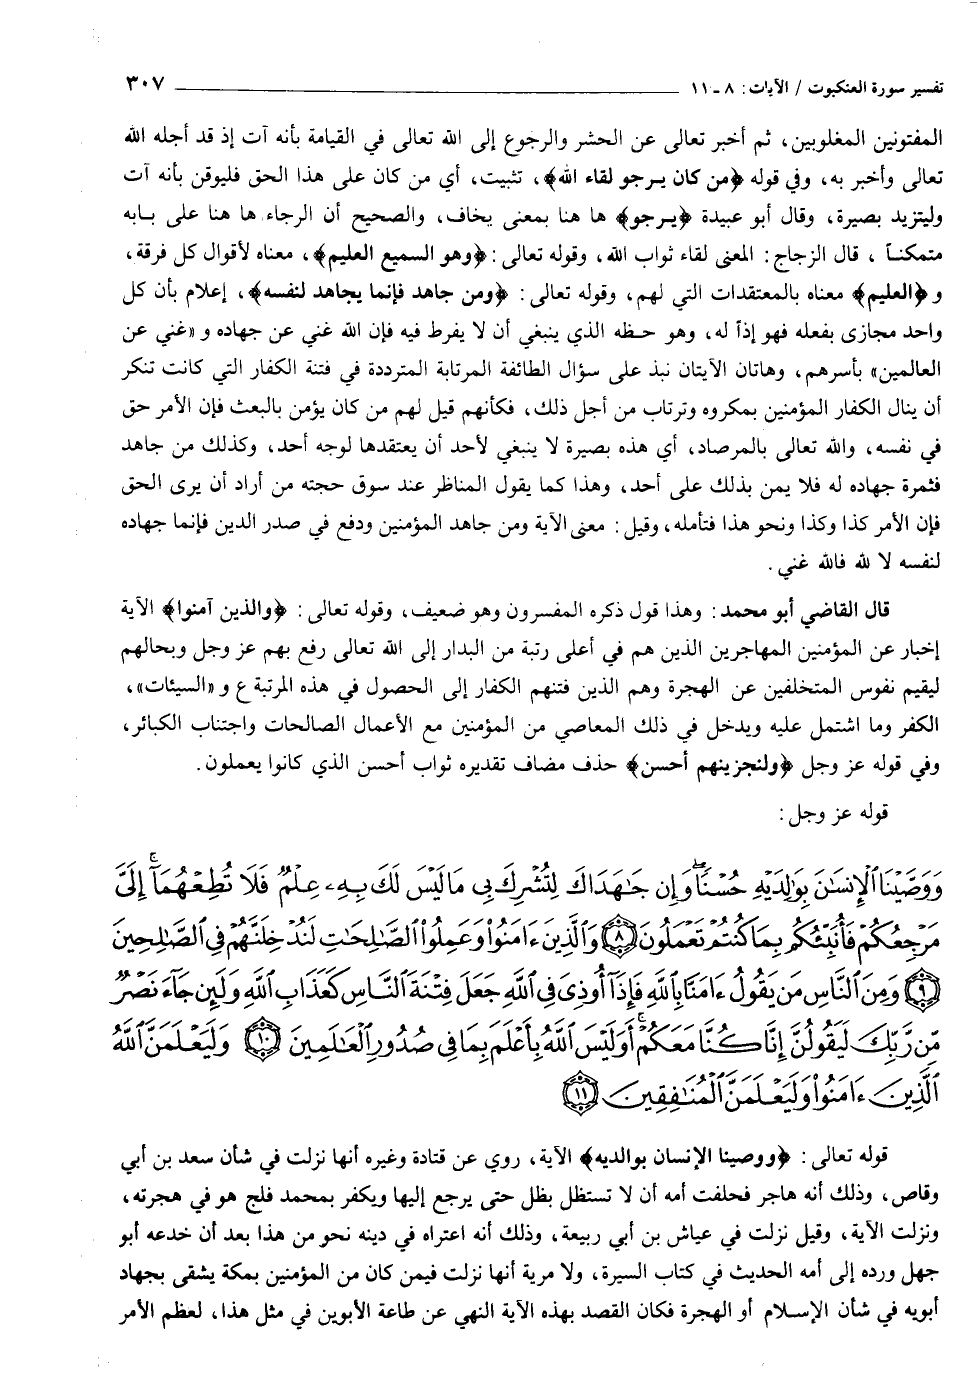 تفسير سورة العنكبوت / الآيات: ٨ ـ ١١ ٣٠٧
المفتونين المغلوبين، ثم أخبر تعالى عن الحشر والرجوع إلى الله تعالى في القيامة بأنه آت إذ قد أجله الله
تعالى وأخبر به، وفي قوله ﴿من كان يرجو لقاء الله﴾، تثبيت، أي من كان على هذا الحق فليوقن بأنه آت
وليتزيد بصيرة، وقال أبو عبيدة ﴿يرجو﴾ ها هنا بمعنى يخاف، والصحيح أن الرجاء ها هنا على بابه
متمكناً، قال الزجاج: المعنى لقاء ثواب الله، وقوله تعالى: ﴿وهو السميع العليم﴾، معناه لأقوال كل فرقة،
و﴿العليم﴾ معناه بالمعتقدات التي لهم، وقوله تعالى: ﴿ومن جاهد فإنما يجاهد لنفسه﴾، إعلام بأن كل
واحد مجازى بفعله فهو إذاً له، وهو حظه الذي ينبغي أن لا يفرط فيه فإن الله غني عن جهاده و«غني عن
العالمين» بأسرهم، وهاتان الآيتان نبذ على سؤال الطائفة المرتابة المترددة في فتنة الكفار التي كانت تنكر
أن ينال الكفار المؤمنين بمكروه وترتاب من أجل ذلك، فكأنهم قيل لهم من كان يؤمن بالبعث فإن الأمر حق
في نفسه، والله تعالى بالمرصاد، أي هذه بصيرة لا ينبغي لأحد أن يعتقدها لوجه أحد، وكذلك من جاهد
فثمرة جهاده له فلا يمن بذلك على أحد، وهذا كما يقول المناظر عند سوق حجته من أراد أن يرى الحق
فإن الأمر كذا وكذا ونحو هذا فتأمله، وقيل: معنى الآية ومن جاهد المؤمنين ودفع في صدر الدين فإنما جهاده
لنفسه لا لله فالله غني.
قال القاضي أبو محمد: وهذا قول ذكره المفسرون وهو ضعيف، وقوله تعالى: ﴿والذين آمنوا﴾ الآية
إخبار عن المؤمنين المهاجرين الذين هم في أعلى رتبة من البدار إلى الله تعالى رفع بهم عز وجل وبحالهم
ليقيم نفوس المتخلفين عن الهجرة وهم الذين فتنهم الكفار إلى الحصول في هذه المرتبة ع و«السيئات»،
الكفر وما اشتمل عليه ويدخل في ذلك المعاصي من المؤمنين مع الأعمال الصالحات واجتناب الكبائر،
وفي قوله عز وجل ﴿ولنجزينهم أحسن﴾ حذف مضاف تقديره ثواب أحسن الذي كانوا يعملون.
قوله عز وجل:
وَوَصَّيْنَا ٱلْإِنسَٰنَ بِوَٰلِدَيْهِ حُسْنًا ۖ وَإِن جَٰهَدَاكَ لِتُشْرِكَ بِى مَا لَيْسَ لَكَ بِهِۦ عِلْمٌ فَلَا تُطِعْهُمَآ ۚ إِلَىَّ
مَرْجِعُكُمْ فَأُنَبِّئُكُم بِمَا كُنتُمْ تَعْمَلُونَ ﴿٨﴾ وَٱلَّذِينَ ءَامَنُوا۟ وَعَمِلُوا۟ ٱلصَّٰلِحَٰتِ لَنُدْخِلَنَّهُمْ فِى ٱلصَّٰلِحِينَ
﴿٩﴾ وَمِنَ ٱلنَّاسِ مَن يَقُولُ ءَامَنَّا بِٱللَّهِ فَإِذَآ أُوذِىَ فِى ٱللَّهِ جَعَلَ فِتْنَةَ ٱلنَّاسِ كَعَذَابِ ٱللَّهِ وَلَئِن جَآءَ نَصْرٌ
مِّن رَّبِّكَ لَيَقُولُنَّ إِنَّا كُنَّا مَعَكُمْ ۚ أَوَلَيْسَ ٱللَّهُ بِأَعْلَمَ بِمَا فِى صُدُورِ ٱلْعَٰلَمِينَ ﴿١٠﴾ وَلَيَعْلَمَنَّ ٱللَّهُ
ٱلَّذِينَ ءَامَنُوا۟ وَلَيَعْلَمَنَّ ٱلْمُنَٰفِقِينَ ﴿١١﴾
قوله تعالى: ﴿ووصينا الإنسان بوالديه﴾ الآية، روي عن قتادة وغيره أنها نزلت في شأن سعد بن أبي
وقاص، وذلك أنه هاجر فحلفت أمه أن لا تستظل بظل حتى يرجع إليها ويكفر بمحمد فلج هو في هجرته،
ونزلت الآية، وقيل نزلت في عياش بن أبي ربيعة، وذلك أنه اعتراه في دينه نحو من هذا بعد أن خدعه أبو
جهل ورده إلى أمه الحديث في كتاب السيرة، ولا مرية أنها نزلت فيمن كان من المؤمنين بمكة يشقى بجهاد
أبويه في شأن الإسلام أو الهجرة فكان القصد بهذه الآية النهي عن طاعة الأبوين في مثل هذا، لعظم الأمر